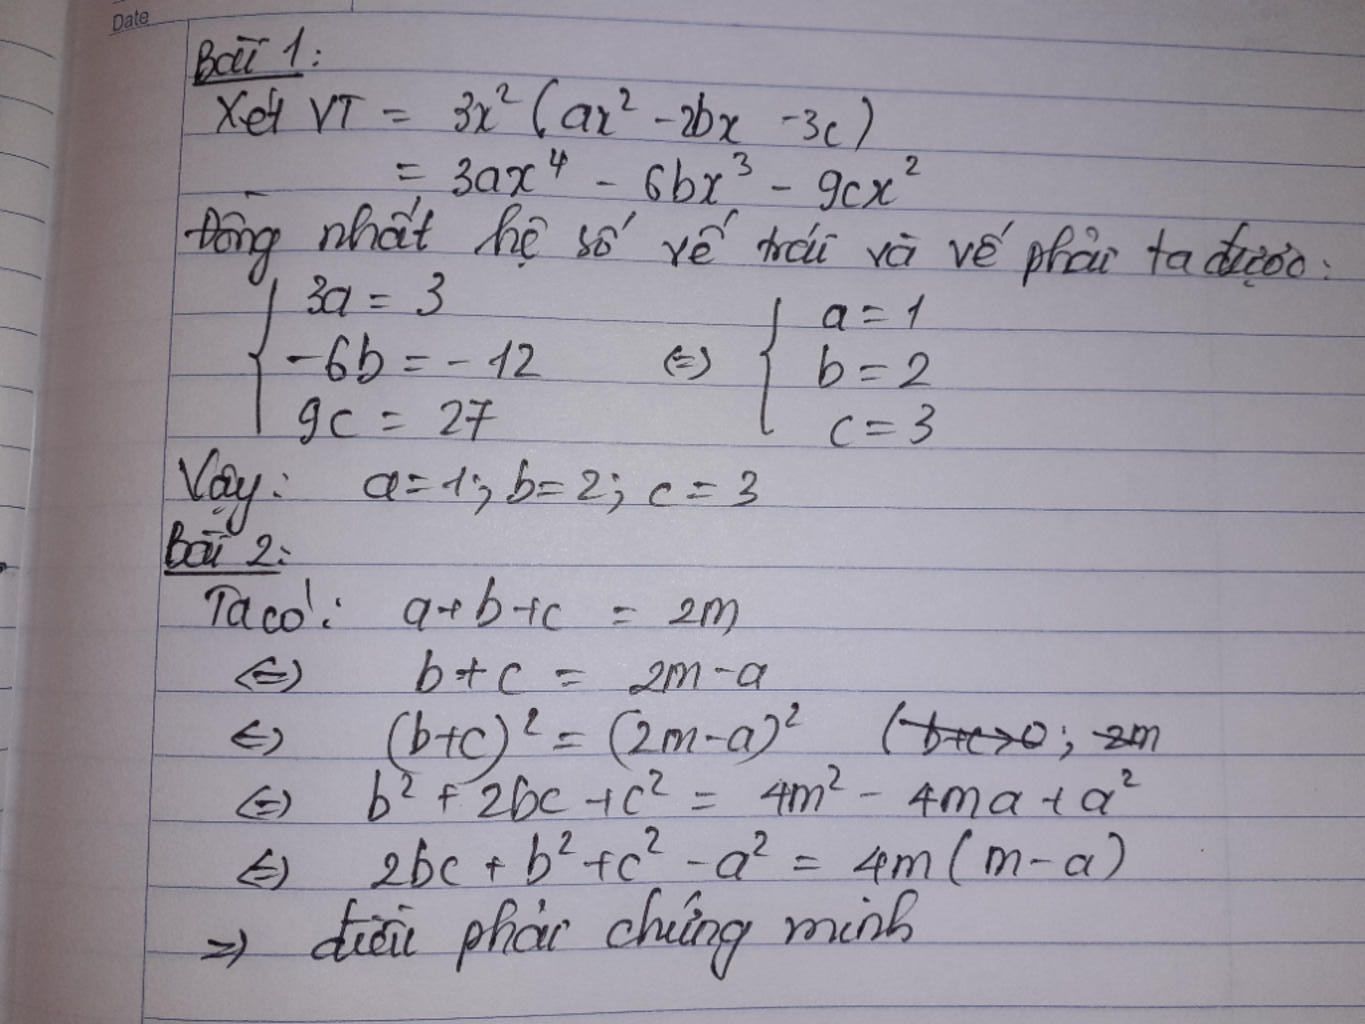 Date
Bài 1:
Xét VT = 3x² (ax² - 2bx - 3c)
= 3ax⁴ - 6bx³ - 9cx²
Đồng nhất hệ số vế trái và vế phải ta được:
{ 3a = 3 { a = 1
-6b = -12 ⇔ b = 2
9c = 27 c = 3
Vậy: a = 1; b = 2; c = 3
Bài 2:
Ta có: a + b + c = 2m
⇔ b + c = 2m - a
⇔ (b+c)² = (2m-a)² (b+c>0; 2m
⇔ b² + 2bc + c² = 4m² - 4ma + a²
⇔ 2bc + b² + c² - a² = 4m(m-a)
⇒ điều phải chứng minh